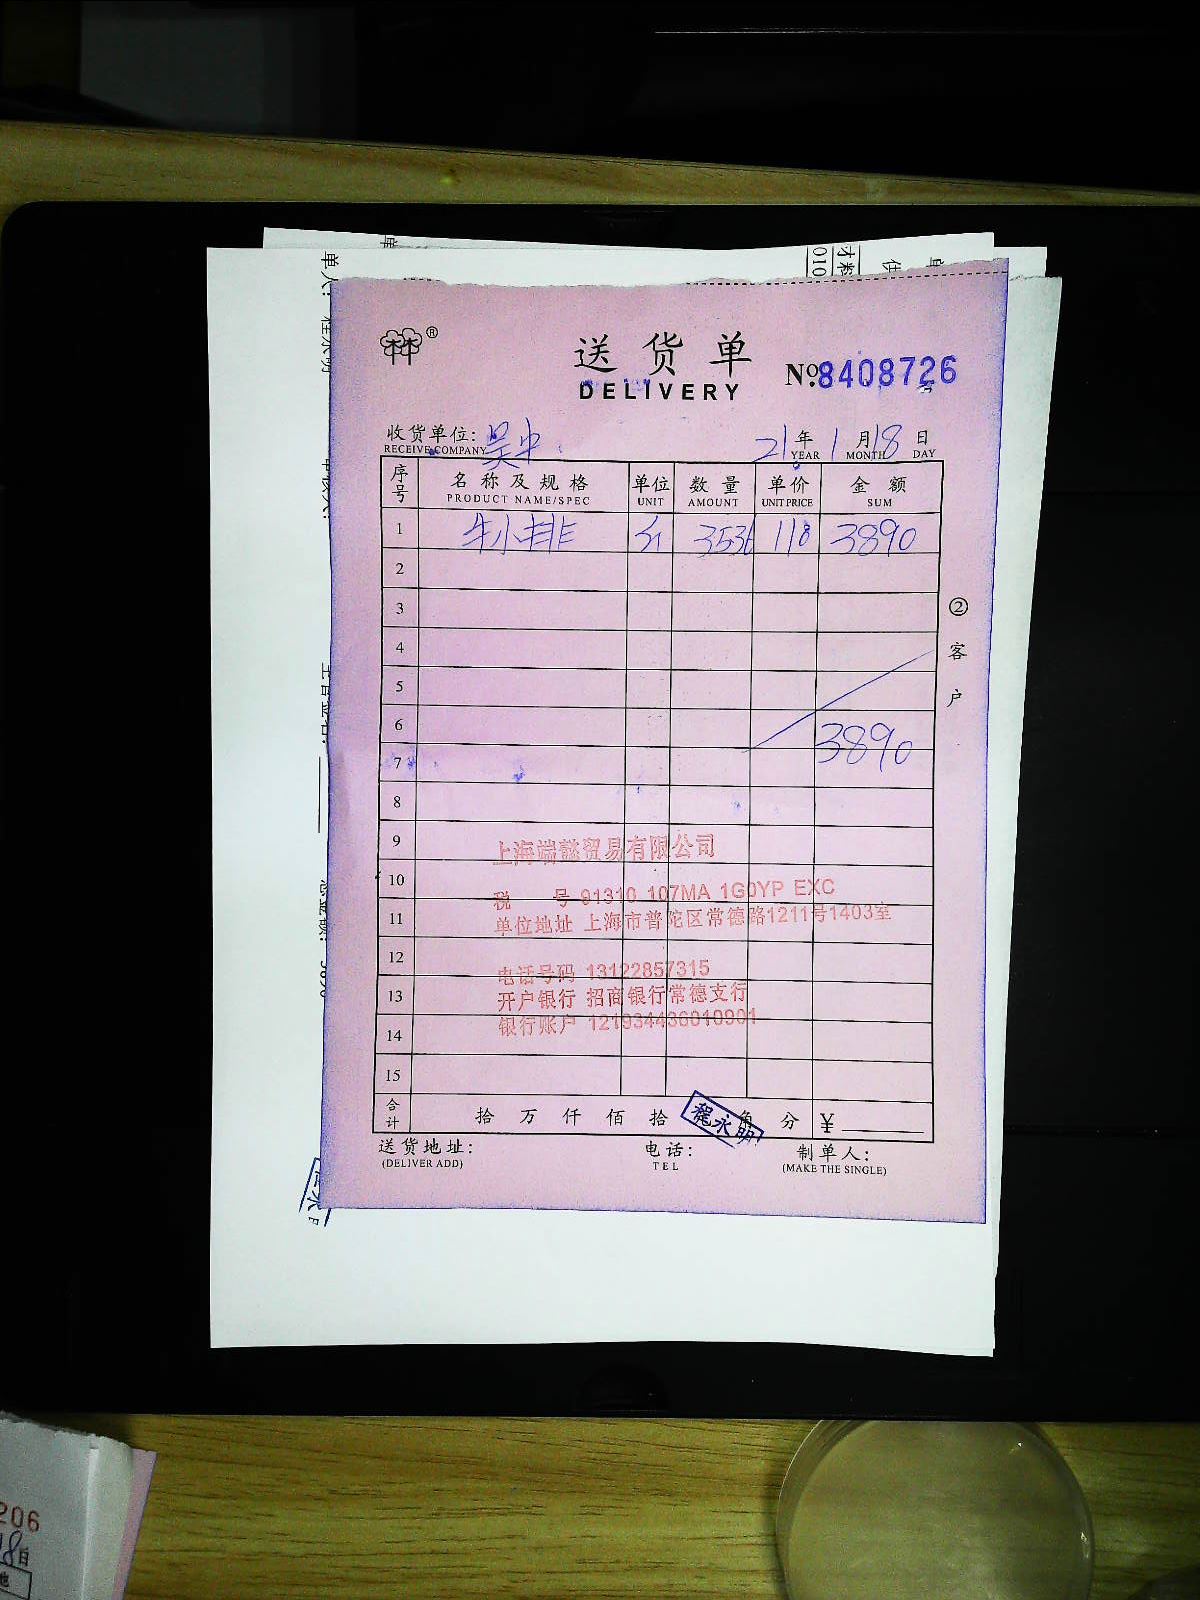 送货单
DELIVERY
No. 8408726
收货单位: 吴中 21年 1月 18日
RECEIVE COMPANY YEAR MONTH DAY
序号 名称及规格 单位 数量 单价 金额
PRODUCT NAME/SPEC UNIT AMOUNT UNIT PRICE SUM
1 牛小排 3536 118 3890
2
3
② 客户
4
5
6 3890
7
8
9
上海端懿贸易有限公司
10
税 号 91310 107MA 1G0YP EXC
11
单位地址 上海市普陀区常德路1211号1403室
12
电话号码 13122857315
13
开户银行 招商银行常德支行
银行账户 121934436010901
14
15
合计 拾 万 仟 佰 拾 角 分 ¥
程永明
送货地址: 电话: 制单人:
(DELIVER ADD) TEL (MAKE THE SINGLE)
206
18日